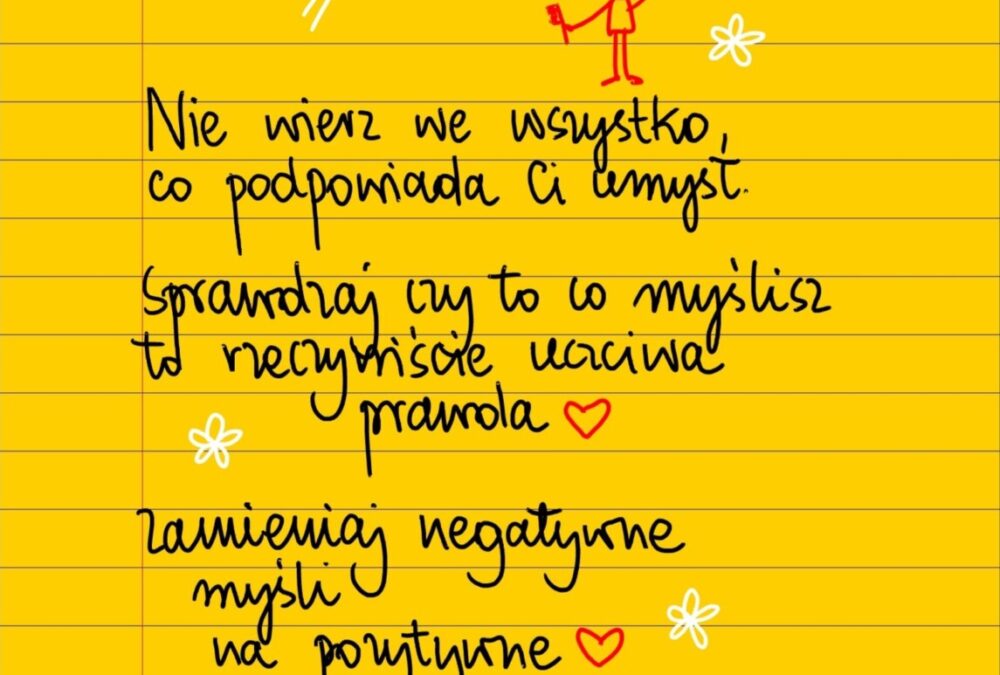 Nie wierz we wszystko,
co podpowiada Ci umysł.
Sprawdzaj czy to co myślisz
to rzeczywiście uczciwa
prawda
zamieniaj negatywne
myśli
na pozytywne